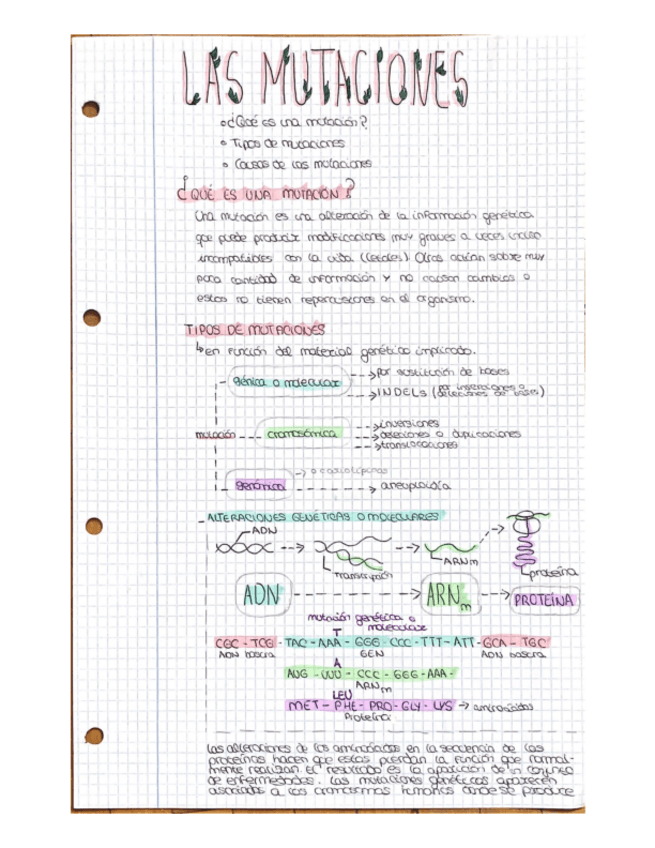 LAS MUTACIONES
• ¿Qué es una mutación?
• Tipos de mutaciones
• Causas de las mutaciones
¿QUÉ ES UNA MUTACIÓN?
Una mutación es una alteración de la información genética
que puede producir modificaciones muy graves a veces incluso
incompatibles con la vida (letales). Otras actúan sobre muy
poca cantidad de información y no causan cambios o
estos no tienen repercusiones en el organismo.
TIPOS DE MUTACIONES
↳ en función del material genético implicado.
génica o molecular
--> por sustitución de bases
--> INDELs (por inserciones o deleciones de bases)
mutación
cromosómica
--> inversiones
--> deleciones o duplicaciones
--> translocaciones
genómica
--> o cariotípicas
--> aneuploidía
- ALTERACIONES GENÉTICAS O MOLECULARES
ADN
Transcripción
ARNm
proteína
ADN --> ARNm --> PROTEÍNA
mutación genética o
molecular
T
CGC - TCG - TAC - AAA - GGG - CCC - TTT - ATT - GCA - TGC
ADN basura GEN ADN basura
A
AUG - UUU - CCC - GGG - AAA -
ARNm
LEU
MET - PHE - PRO - GLY - LYS -> aminoácidos
Proteína
Las alteraciones de los aminoácidos en la secuencia de las
proteínas hacen que estas pierdan la función que normal-
mente realizan. El resultado es la aparición de un conjunto
de enfermedades. Las mutaciones genéticas aparecen
asociadas a los cromosomas humanos donde se produce